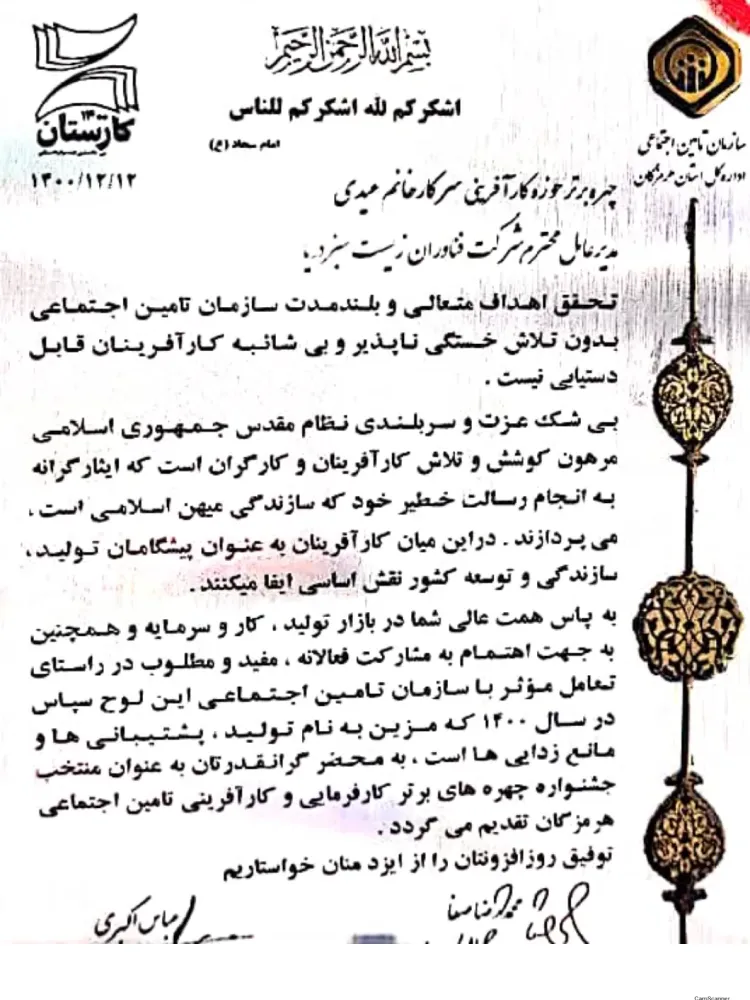 بسم الله الرحمن الرحیم
اشکرکم لله اشکرکم للناس
امام سجاد (ع)
کارستان
۱۴۰۰/۱۲/۱۲
سازمان تامین اجتماعی
اداره کل استان هرمزگان
چهره برتر حوزه کارآفرینی سرکار خانم عیدی
مدیرعامل محترم شرکت فناوران زیست سبز دریا
تحقق اهداف متعالی و بلندمدت سازمان تامین اجتماعی
بدون تلاش خستگی ناپذیر و بی شائبه کارآفرینان قابل
دستیابی نیست .
بی شک عزت و سربلندی نظام مقدس جمهوری اسلامی
مرهون کوشش و تلاش کارآفرینان و کارگران است که ایثارگرانه
به انجام رسالت خطیر خود که سازندگی میهن اسلامی است ،
می پردازند . دراین میان کارآفرینان به عنوان پیشگامان تولید ،
سازندگی و توسعه کشور نقش اساسی ایفا میکنند .
به پاس همت عالی شما در بازار تولید ، کار و سرمایه و همچنین
به جهت اهتمام به مشارکت فعالانه ، مفید و مطلوب در راستای
تعامل مؤثر با سازمان تامین اجتماعی این لوح سپاس
در سال ۱۴۰۰ که مزین به نام تولید ، پشتیبانی ها و
مانع زدایی ها است ، به محضر گرانقدرتان به عنوان منتخب
جشنواره چهره های برتر کارفرمایی و کارآفرینی تامین اجتماعی
هرمزگان تقدیم می گردد .
توفیق روزافزونتان را از ایزد منان خواستاریم
محمدرضا صفا
عباس اکبری
CamScanner